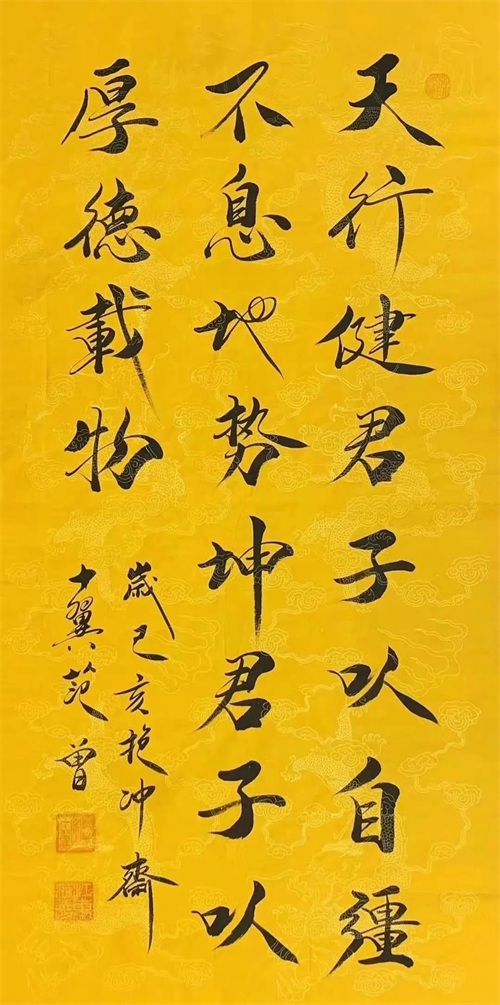 天行健君子以自疆
不息地势坤君子以
厚德載物
歲己亥抱冲齋
十翼范曾